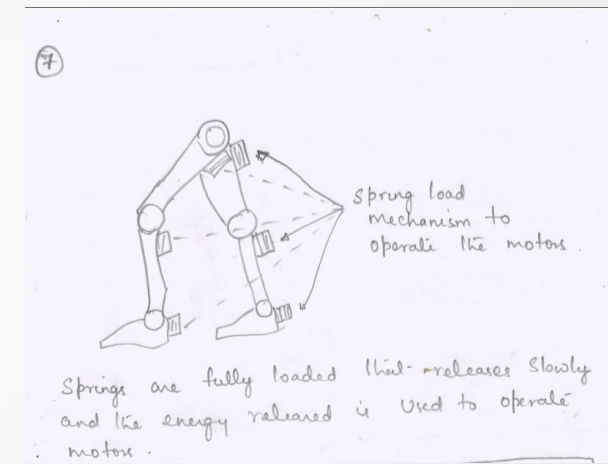 7
spring load
mechanism to
operate the motors.
Springs are fully loaded that releases slowly
and the energy released is used to operate
motors.